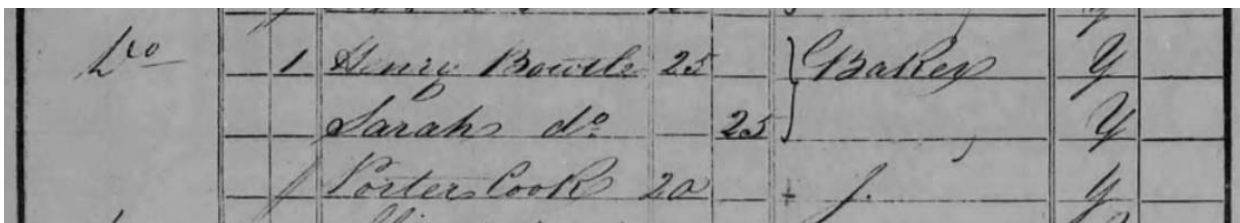 Do 1 Henry Bowile 25 Baker Y
Sarah do 25 Y
Porter Cook 20 J. Y